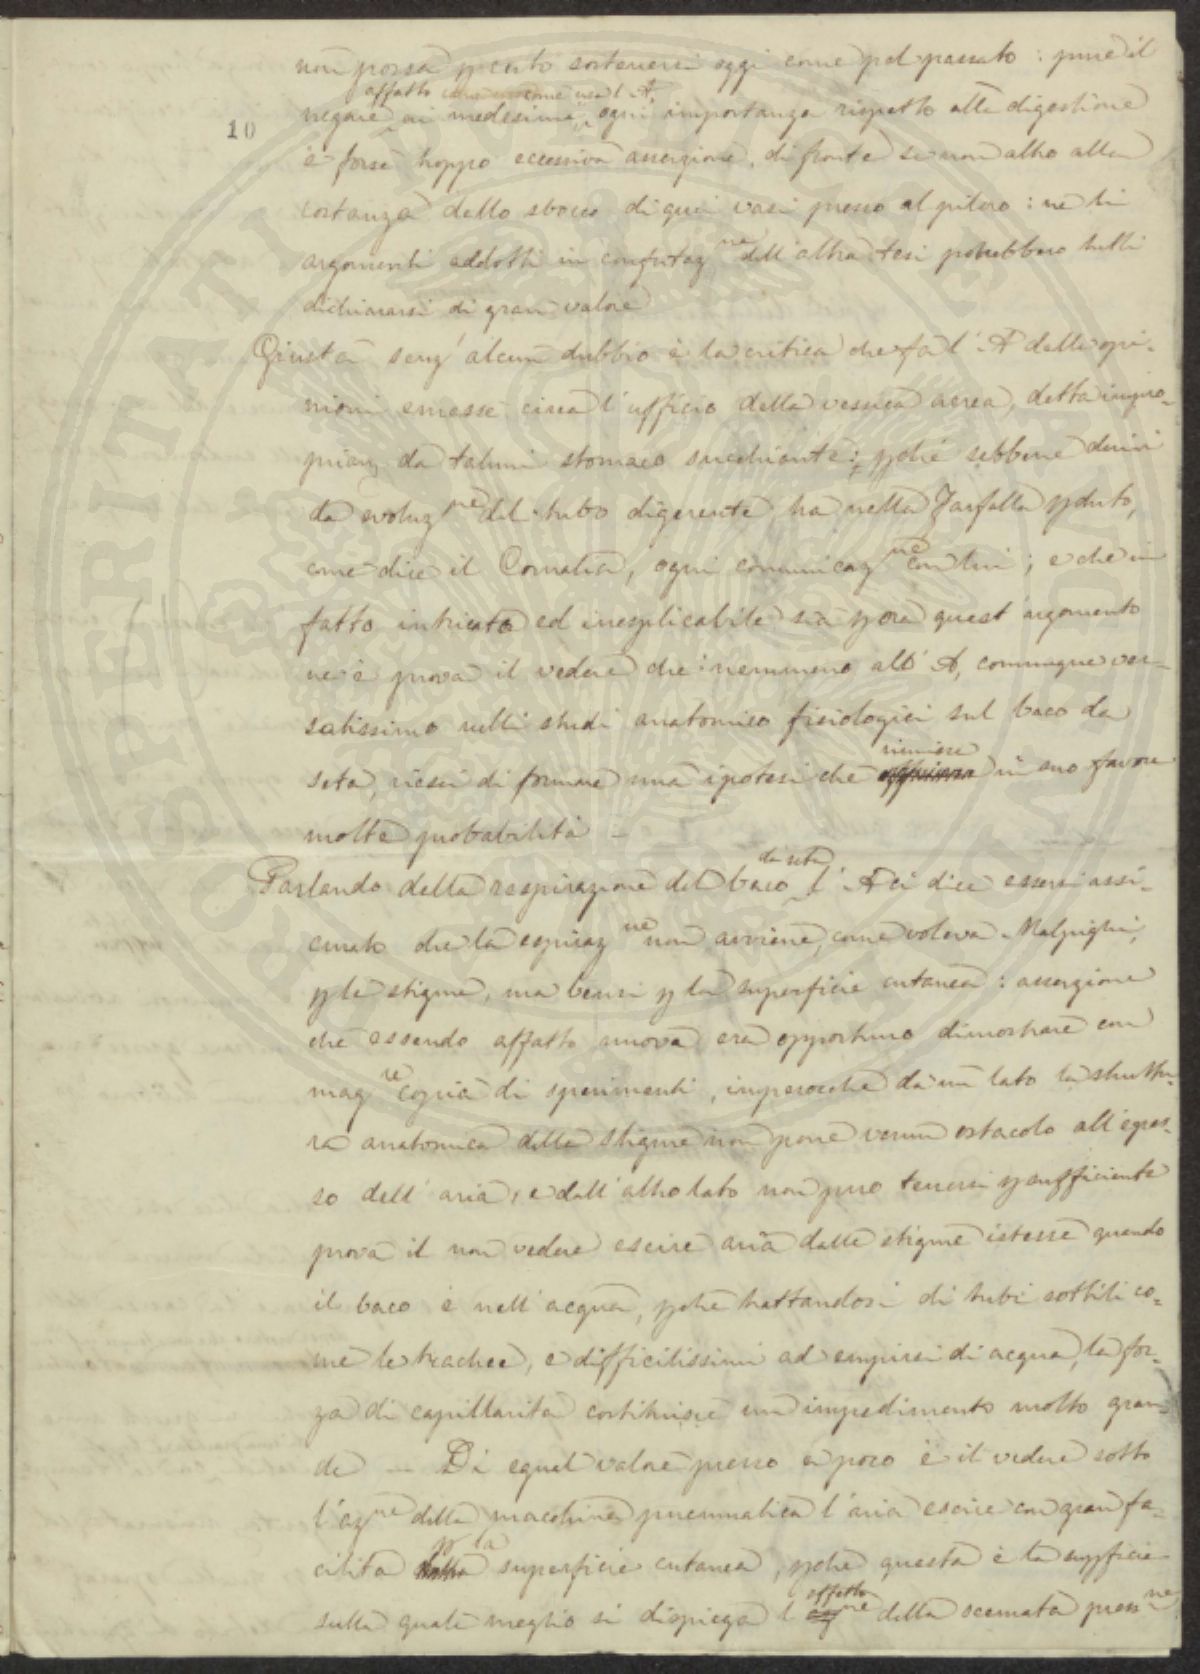 non possa p certo sostenersi oggi come pel passato: pure il
affatto come usa l'A,
negare ai medesimi ogni importanza rispetto alla digestione
10
è forse troppo eccessiva asserzione, di fronte se non altro alla
costanza dello sbocco di quei vasi presso al piloro: ne li
argomenti addotti in confutazne dell'altra tesi potrebbero tutti
dichiararsi di gran valore
Giusta senz'alcun dubbio è la critica che fa l'A delle opi-
nioni emesse circa l'ufficio della vessica aerea, detta impro-
priam da taluni stomaco succhiante; pchè sebbene derivi
da evoluzne del tubo digerente, ha nella Farfalla pduto,
come dice il Cornalia, ogni comunicazne con lui; e che in
fatto intricato ed inesplicabile sia p ora quest'argomento
ne è prova il vedere che nemmeno all'A, comunque ver-
satissimo nelli studi anatomico fisiologici sul baco da
seta, riescì di formare una ipotesi che riunisse in suo favore
molte probabilità –
Parlando della respirazione del baco da seta l'A ci dice essersi assi-
curato che la espirazne non avviene, come voleva Malpighi,
p le stigme, ma bensì p la superficie cutanea: asserzione
che essendo affatto nuova era opportuno dimostrare con
magre copia di sperimenti, imperocchè da un lato la struttu-
ra anatomica delle stigme non pone verun ostacolo all'egres-
so dell'aria, e dall'altro lato non può tenersi p sufficiente
prova il non vedere escire aria dalle stigme istesse quando
il baco è nell'acqua, pchè trattandosi di tubi sottili co-
me le trachee, e difficilissimi ad empirsi di acqua, la for-
za di capillarità costituisce un impedimento molto gran-
de – Di egual valore presso a poco è il vedere sotto
l'azne della macchina pneumatica l'aria escire con gran fa-
cilità p la superficie cutanea, pchè questa è la supficie
sulla quale meglio si dispiega l'effetto della scemata pressne